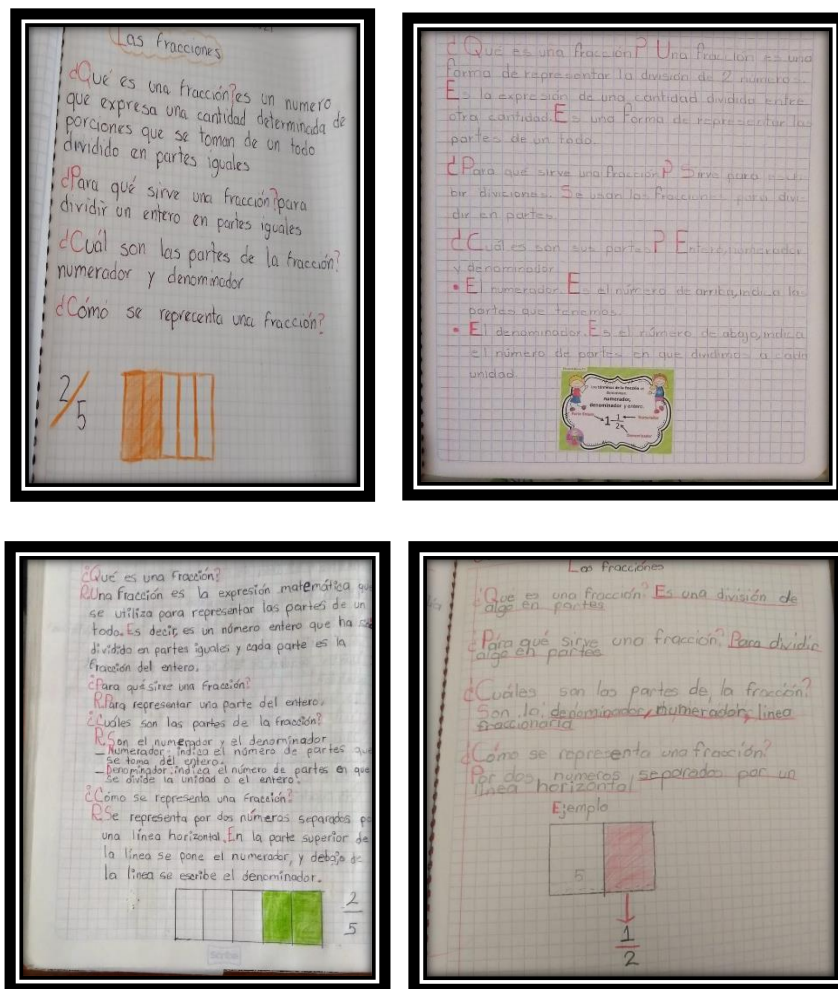 Las fracciones
¿Qué es una fracción? es un numero
que expresa una cantidad determinada de
porciones que se toman de un todo
dividido en partes iguales
¿Para qué sirve una fracción? para
dividir un entero en partes iguales
¿Cuál son las partes de la fracción?
numerador y denominador
¿Cómo se reprecenta una fracción?
2/5
¿Que es una fracción? Una fracción es una
forma de representar la división de 2 numeros.
Es la expresión de una cantidad dividida entre
otra cantidad. Es una forma de representar las
partes de un todo.
¿Para que sirve una fracción? Sirve para escri-
bir diviciones. Se usan las fracciones para divi-
dir en partes.
¿Cuáles son sus partes? Entero, numerador
y denominador
• El numerador. Es el número de arriba, indica las
partes que tenemos.
• El denominador. Es el número de abajo, indica
el número de partes en que dividimos a cada
unidad.
numerador,
denominador y entero.
1 1/2
¿Qué es una fracción?
R. Una fracción es la expresión matemática qu
se utiliza para representar las partes de un
todo. Es decir, es un número entero que ha si
dividido en partes iguales y cada parte es la
fracción del entero.
¿Para qué sirve una fracción?
R. Para representar una parte del entero.
¿Cuáles son las partes de la fracción?
R. Son el numerador y el denominador
– Numerador: indica el número de partes que
se toma del entero.
– Denominador: indica el número de partes en que
se divide la unidad o el entero.
¿Cómo se representa una fracción?
R. Se representa por dos números separados po
una línea horizontal. En la parte superior de
la línea se pone el numerador, y debajo de
la línea se escribe el denominador.
2/5
Scribe
Las fracciones
¿Que es una fracción? Es una división de
algo en partes
¿Para qué sirve una fracción? Para dividir
algo en partes
¿Cuáles son las partes de la fracción?
Son, la: denominador, numerador, linea
fraccionaria
¿Cómo se representa una fracción?
Por dos numeros, separados por un
linea horizontal
Ejemplo
5
1/2